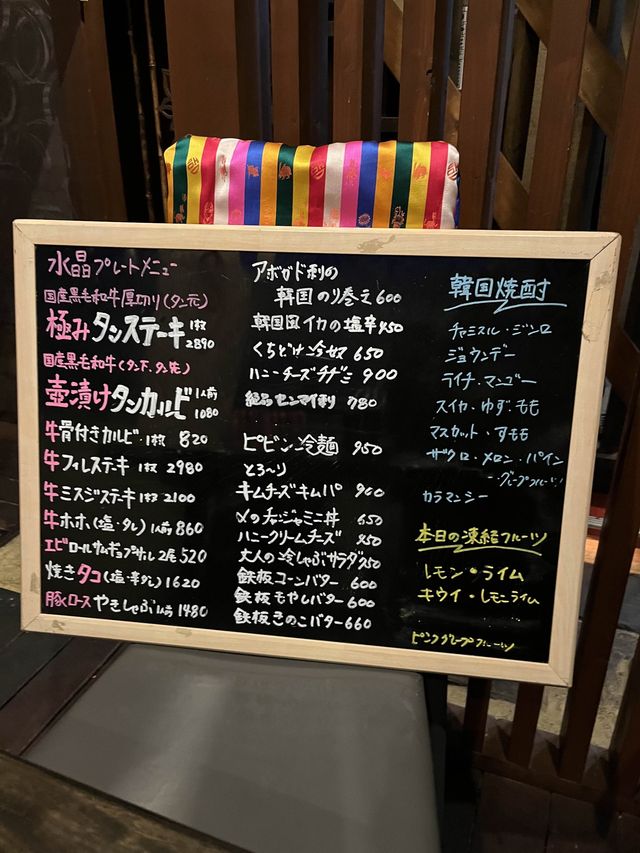 水晶プレートメニュー
国産黒毛和牛厚切り(タン元)
極みタンステーキ 1枚 2890
国産黒毛和牛(タン下、タン先)
壺漬けタンカルビ 1人前 1080
牛骨付きカルビ 1枚 820
牛フィレステーキ 1枚 2980
牛ミスジステーキ 1枚 2100
牛ホホ(塩・タレ) 1人前 860
エビロールサムギョプサル 2尾 520
焼きタコ(塩・辛タレ) 1620
豚ロースやきしゃぶ 1人前 1480
アボカド刺の
韓国のり巻え 600
韓国風イカの塩辛 450
くちどけ 650
ハニーチーズチヂミ 900
絶品センマイ刺り 780
ピビン冷麺 950
とろ〜り
キムチーズキムパ 900
〆のチャンジャミニ丼 650
ハニークリームチーズ 450
大人の冷しゃぶサラダ
鉄板コーンバター 600
鉄板もやしバター 600
鉄板きのこバター 660
韓国焼酎
チャミスル・ジンロ
ジョウンデー
ライチ・マンゴー
スイカ・ゆず・もも
マスカット・すもも
ザクロ・メロン・パイン
・グレープフルーツ
カラマンシー
本日の凍結フルーツ
レモン・ライム
キウイ・レモンライム
ピンクグレープフルーツ